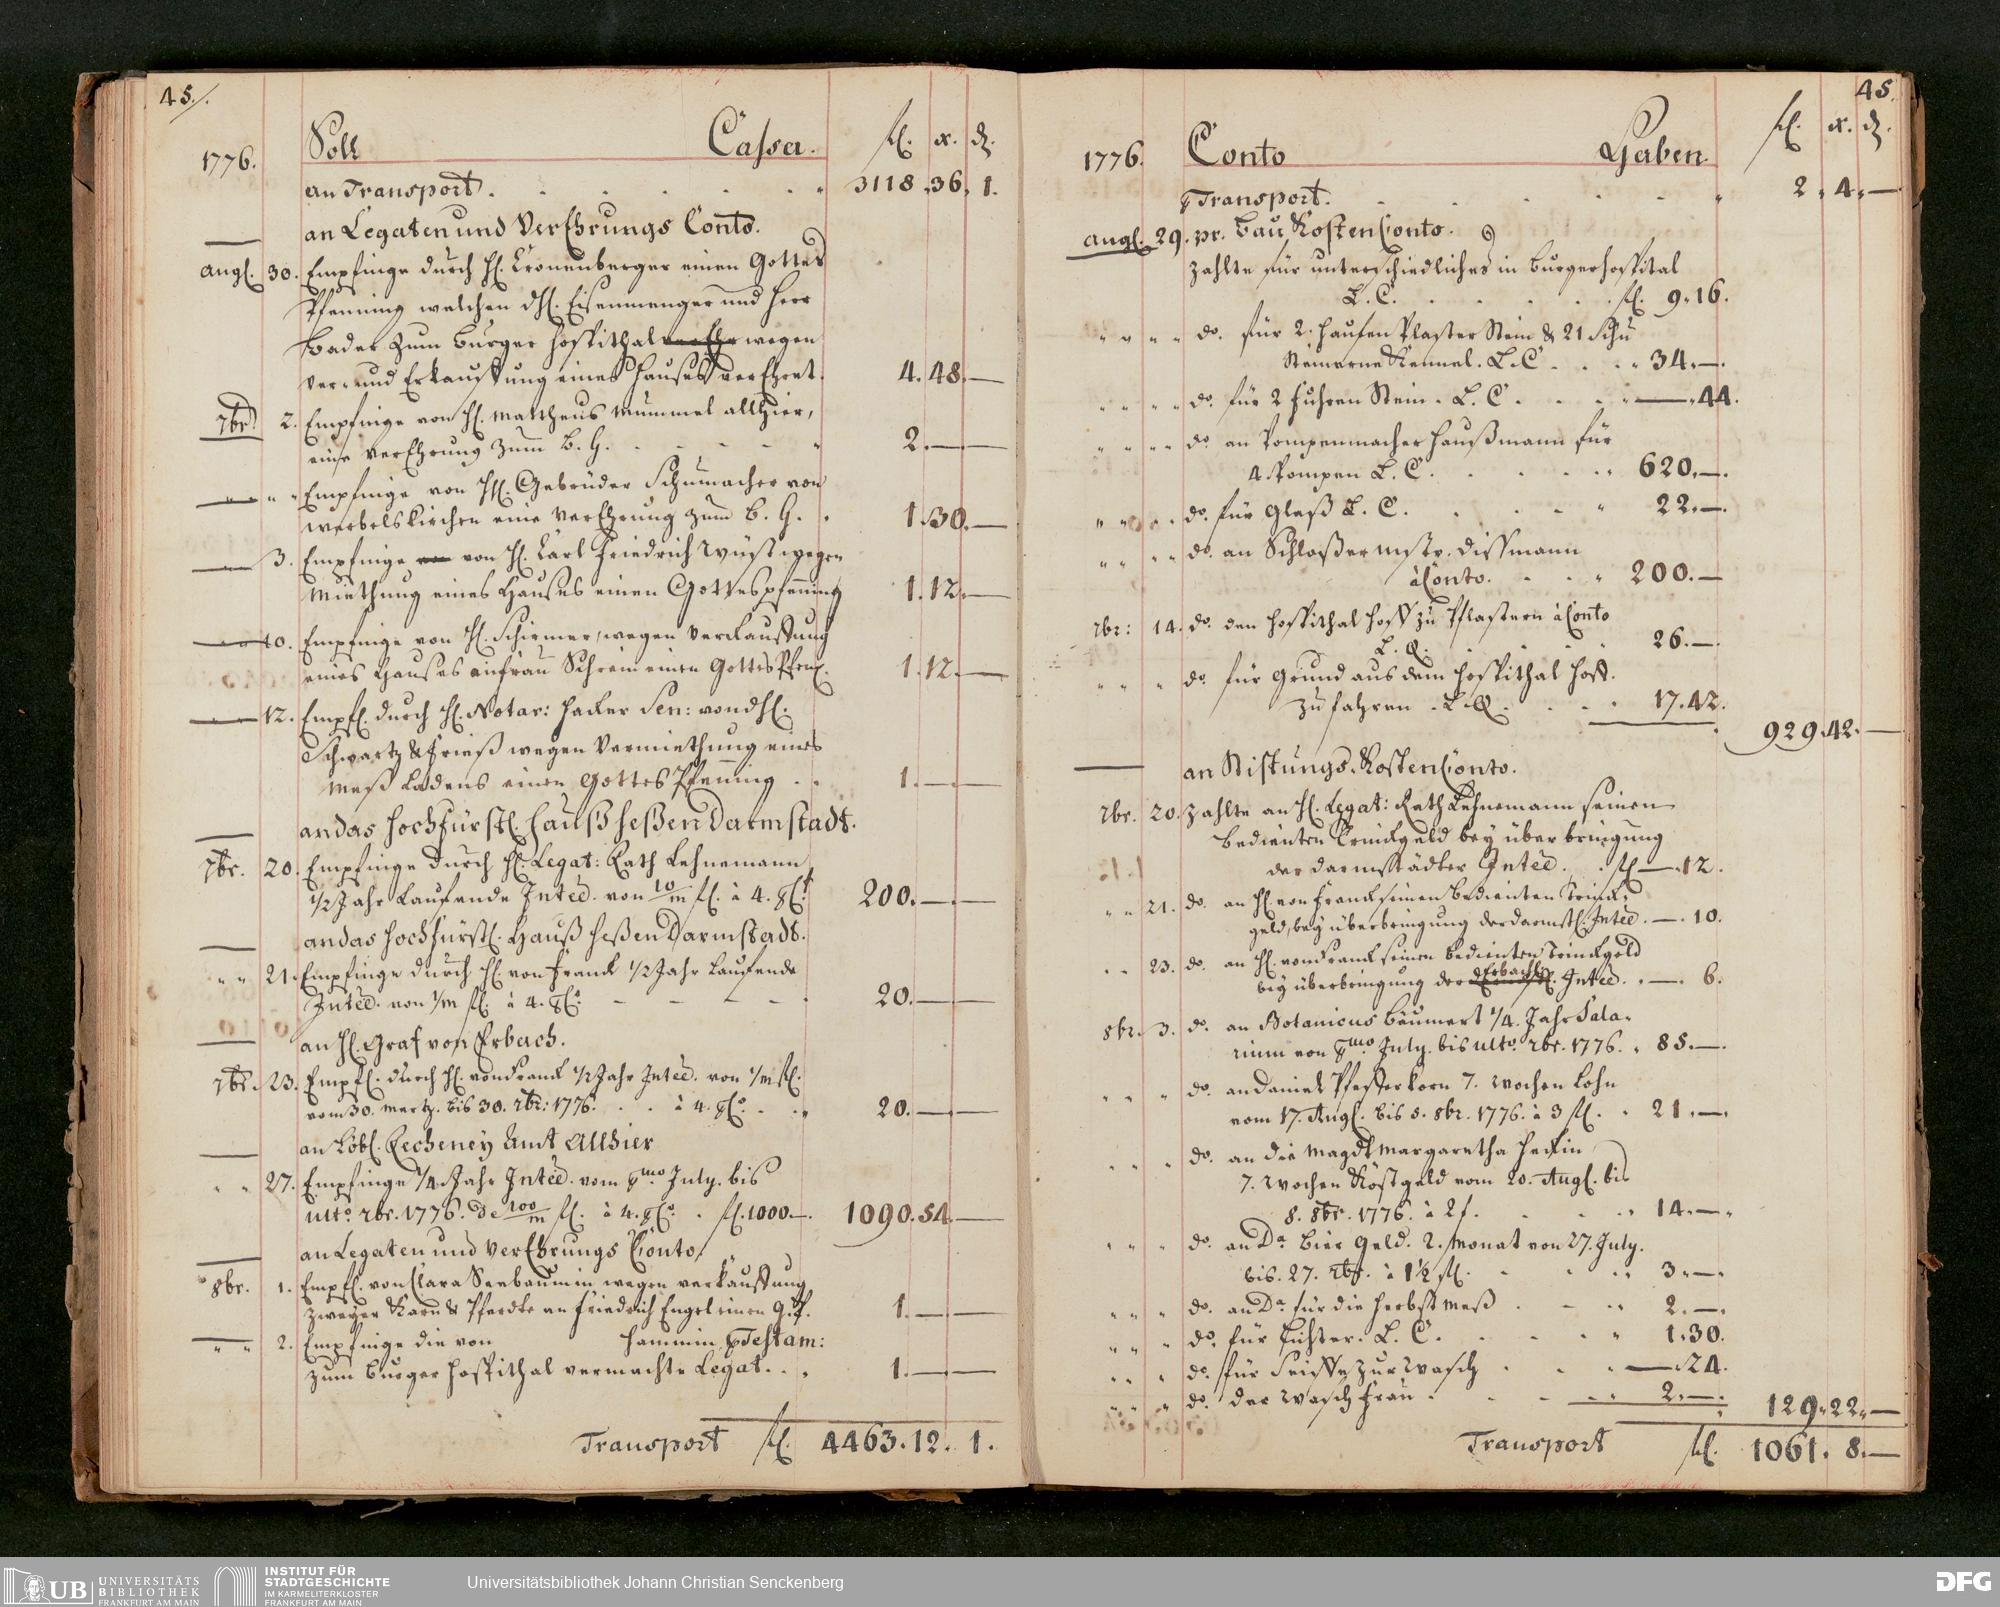 45.
1776. Soll Cassa. fl. x. d.
an Transport. 3118. 36. 1.
an Legaten und VerEhrungs Conto.
Augl. 30. Empfinge durch H. Cronenberger einen Gottes
Pfenning welchen dH. Eisenmenger und Herr
Bader zum Burger Hospithal wegen
Ver- und Erkauffung eines Hauses verEhret 4. 48. —
7br. 2. Empfinge von H. Mattheus Mummel allhier,
eine VerEhrung zum B. H. 2. — —
" " Empfinge von HH. Gebrüder Schumacher von
Werbelskirchen eine VerEhrung zum B. H. 1. 30. —
3. Empfinge von H. Carl Friedrich Wüst wegen
Miethung eines Hauses einen Gottespfenning 1. 12. —
10. Empfinge von H. Schirmer, wegen Verkauffung
eines Hauses an Frau Schrein einen Gottes Pfen. 1. 12. —
12. Empf. durch H. Notar: Hacker Sen: von dH.
Schwartz & Frieß wegen Vermiethung eines
Meß Ladens einen Gottes Pfenning 1. — —
an das Hochfürstl. Hauß Heßen Darmstadt.
7br. 20. Empfinge durch H. Legat: Rath Lehnemann
1/2 Jahr Laufende Inteē. von 10/m fl. à 4. pC. 200. — —
an das Hochfürstl. Hauß Heßen Darmstadt.
" " 21. Empfinge durch H. von Franck 1/2 Jahr Laufende
Inteē. von 1/m fl. à 4. pCo. 20. — —
an H. Graf von Erbach.
7br. 23. Empf. durch H. von Franck 1/2 Jahr Inteē. von 1/m fl.
vom 30. Mertz. bis 30. 7br: 1776. à 4. pCo. 20. — —
an Löbl. Recheney Amt Allhier
" " 27. Empfinge 1/4 Jahr Inteē. vom pmo July. bis
ulto. 7br. 1776. de 100/m fl. à 4. pCo. fl. 1000 —. 1090. 54. —
an Legaten und VerEhrungs Conto,
8br. 1. Empf. von Clara Seebaumin wegen verkauffung
zweyer Karn & Pferdte an Friedrich Engel einen G. Pf. 1. — —
" " 2. Empfinge die von Hammin p Testam:
zum Burger Hospithal vermachte Legat. 1. — —
Transport fl. 4463. 12. 1.
45.
1776. Conto Haben. fl. x. d.
p Transport. 2. 4. —
Augl. 29. pr. Bau Kosten Conto.
zahlte für unterschiedliches in Burgerhospital
L. C. fl. 9. 16.
" " " " do. für 2. Haufen Plaster Stein & 21 Schu
Steinerne Kennel. L. C. 34. —.
" " " " do. für 2 Fuhren Stein. L. C. — 44.
" " " " do. an Pompenmacher Haußmann für
4. Pompen L. C. 620. —.
" " " " do. für Glaß L. C. 22. —.
" " " " do. an Schloßer mstr. Dissmann
à Conto. 200. —
7br: 14. do. den Hospithal Hoff zu Pflastern à Conto
L. Q. 26. —.
" " " do. für Grund aus dem Hospithal Hoff.
zu fahren. L. Q. 17. 42.
929. 42. —
an Stiftungs. Kosten Conto.
7br. 20. zahlte an H. Legat: Rath Lehnemann seinen
Bedienten Trinkgeld bey überbringung
der Darmstädter Inteē. fl — 12.
" " 21. do. an H. von Franck seinen Bedienten Trink-
geld, bey überbringung der Darmst. Inteē. —. 10.
" " 23. do. an H. von Franck seinen bedienten Trinkgeld
bey überbringung der Erbach. Inteē. —. 6.
8br. 3. do. an Botanicus Bäumert 1/4. Jahr Sala-
rium von pmo July. bis ulto. 7br. 1776. 85. —.
" " " do. an Daniel Pfefferkorn 7. Wochen Lohn
vom 17. Augl. bis 5. 8br. 1776. à 3 fl. 21. —.
" " " do. an die Magdt Margaretha
7. Wochen Kostgeld vom 20. Augl. bis
8. 8br. 1776. à 2 f. 14. —
" " " do. an Da. Bier Geld. 2. Monat von 27. July.
bis. 27. 7br. à 1 1/2 fl. 3. —.
" " " do. an Da. für die Herbst Meß 2. —.
" " " do. für Lichter. L. C. 1. 30.
" " " do. für Seiffe zur Wasch — 24.
" " " do. der Wasch Frau 2. —.
129. 22. —
Transport fl. 1061. 8. —
UB UNIVERSITÄTS
BIBLIOTHEK
FRANKFURT AM MAIN
INSTITUT FÜR
STADTGESCHICHTE
IM KARMELITERKLOSTER
FRANKFURT AM MAIN
Universitätsbibliothek Johann Christian Senckenberg
DFG